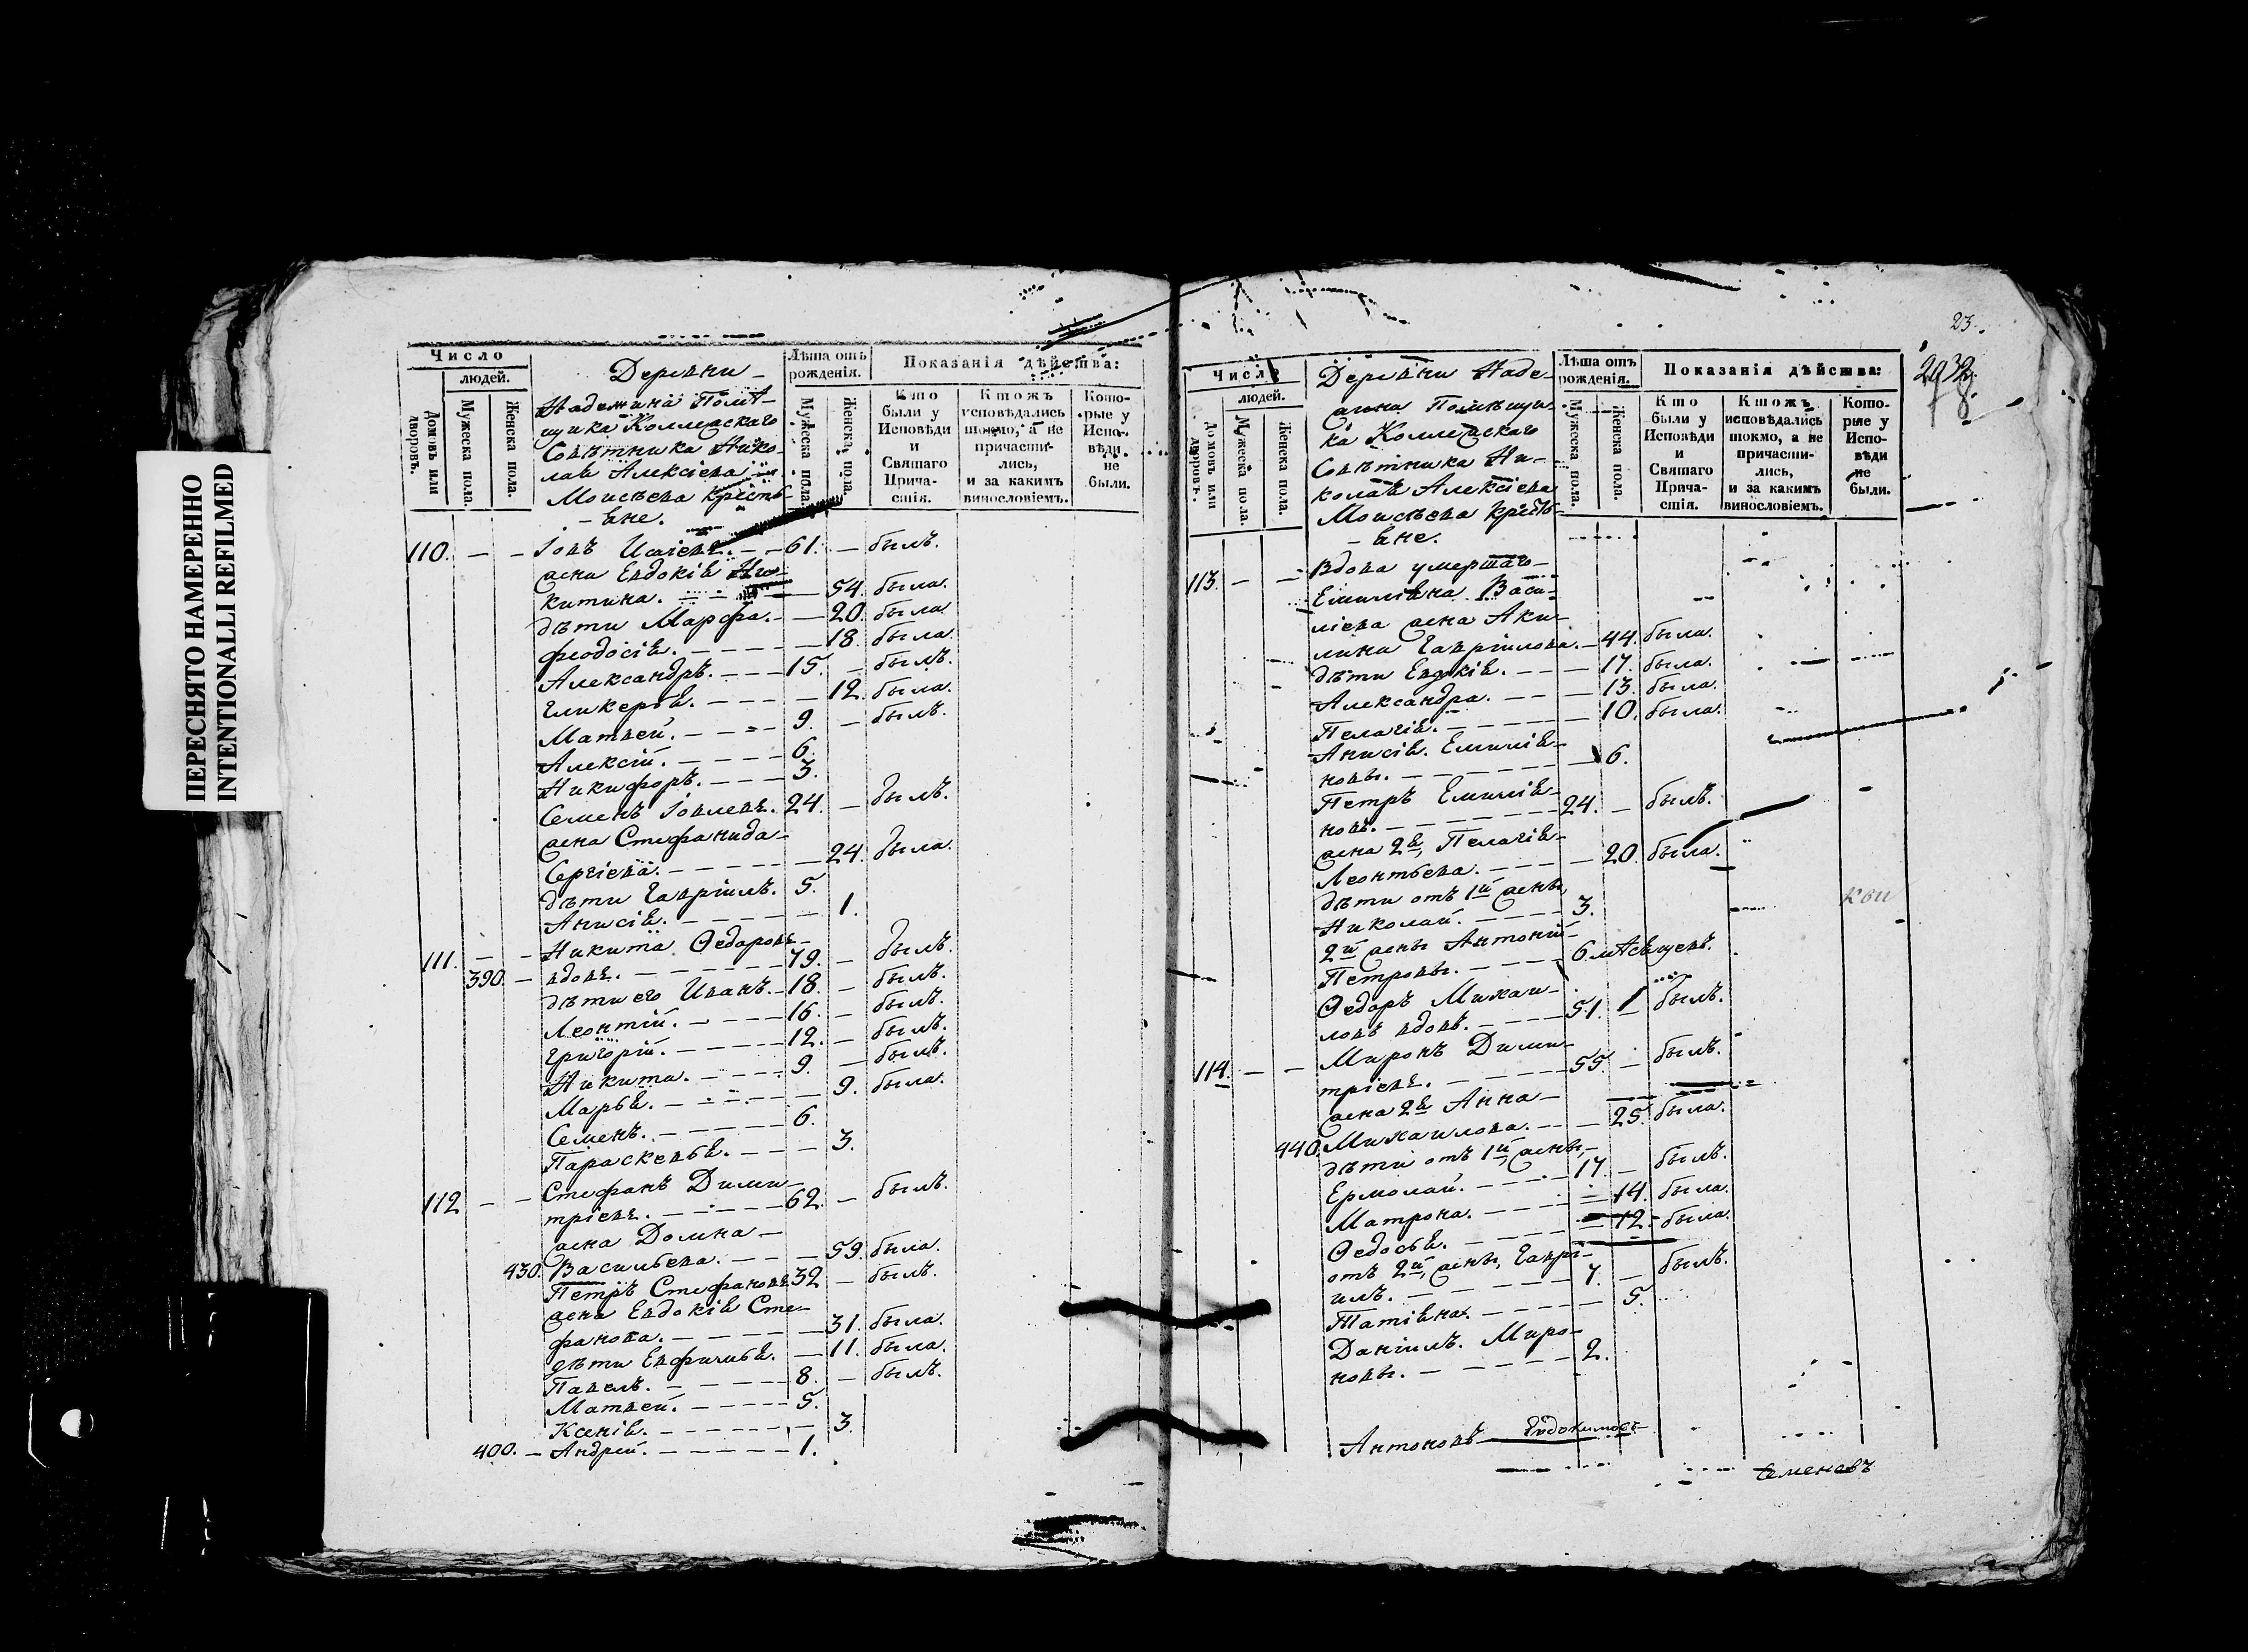 ПЕРЕСНЯТО НАМЕРЕННО
INTENTIONALLI REFILMED
Число
людей.
Домовъ или дворовъ.
Мужеска пола.
Женска пола.
Деревни
Надежина Помѣ-
щика Коллежскаго
Совѣтника Нико-
лая Алексіева
Моисѣева кресть-
яне.
Лѣта отъ рожденія.
Мужеска пола.
Женска пола.
Показанія дѣйства:
Кто были у Исповѣди и Святаго Прича-стія.
Ктожъ исповѣдались токмо, а не причасти-лись, и за какимъ винословіемъ.
Кото-рые у Испо-вѣди не были.
110. – – Іовъ – – 61. – былъ.
жена Евдокія Ни-
китина. – – 54. была.
дѣти Марфа. – – 20. была
Феодосія. – – 18. была.
Александръ. – – 15. – былъ.
Гликерія. – – 12. была.
Матвей. – – 9. – былъ.
Алексій. – – 6.
Никифоръ. – – 3.
Семенъ Іовлевъ. 24. – былъ.
жена Стефанида
Сергіева. – – 24. была.
дѣти Гавріилъ. 5.
Анисія. – – 1.
111. – – Никита Федоровъ
390. – вдовъ. – – 79. – былъ.
дѣти его Иванъ. – 18. – былъ.
Леонтій. – – 16. – былъ.
Григорій. – – 12. – былъ.
Никита. – – 9. – былъ.
Марья. – – 9. была.
Семенъ. – – 6.
Параскевья. – – 3.
112 – – Стефанъ Дими-
тріевъ. – – 62. – былъ.
жена Домна
430. Васильева. – – 59. была.
Петръ Стефановъ 32 – былъ.
жена Евдокія Сте-
фанова. – – 31. была.
дѣти Евфимья. – 11. была.
Павелъ. – – 8. – былъ.
Матвей. – – 5.
Ксенія. – – 3.
400. – Андрей. – – 1.
23.
Число
людей.
Домовъ или дворовъ.
Мужеска пола.
Женска пола.
Деревни Наде-
жина Помѣщи-
ка Коллежскаго
Совѣтника Ни-
колая Алексіева
Моисѣева кресть-
яне.
Лѣта отъ рожденія.
Мужеска пола.
Женска пола.
Показанія дѣйства:
Кто были у Исповѣди и Святаго Прича-стія.
Ктожъ исповѣдались токмо, а не причасти-лись, и за какимъ винословіемъ.
Кото-рые у Испо-вѣди не были.
113. – – Вдова умершаго
Емиліяна Васи-
ліева жена Аку-
лина Гавріилова. – 44. была.
дѣти Евдокія. – – 17. была.
Александра. – – 13. была.
Пелагія. – – 10. была.
Анисія. Емилія-
новы. – – 6.
Петръ Емилія-
новъ. – – 24. – былъ.
жена 2я, Пелагія
Леонтьева. – – 20. была.
дѣти отъ 1й жены,
Николай. – – 3.
2й жены Антоній
Петровы. – – 6 мѣсяцевъ.
Федоръ Михаи-
ловъ вдовъ. – – 51. былъ.
114. – – Миронъ Дими-
тріевъ. – – 55 – былъ.
жена 2я Анна
440. Михаилова. – – 25. была.
дѣти отъ 1й, жены,
Ермолай. – – 17. – былъ.
Матрона. – – 14. была.
Федосья. – – 12. была.
отъ 2й, жены, Гаврі-
илъ. – – 7. – былъ.
Татіяна. – – 5.
Даніилъ. Миро-
новы. – – 2.
кои
Антоновъ
Евдокимовъ
Семеновъ